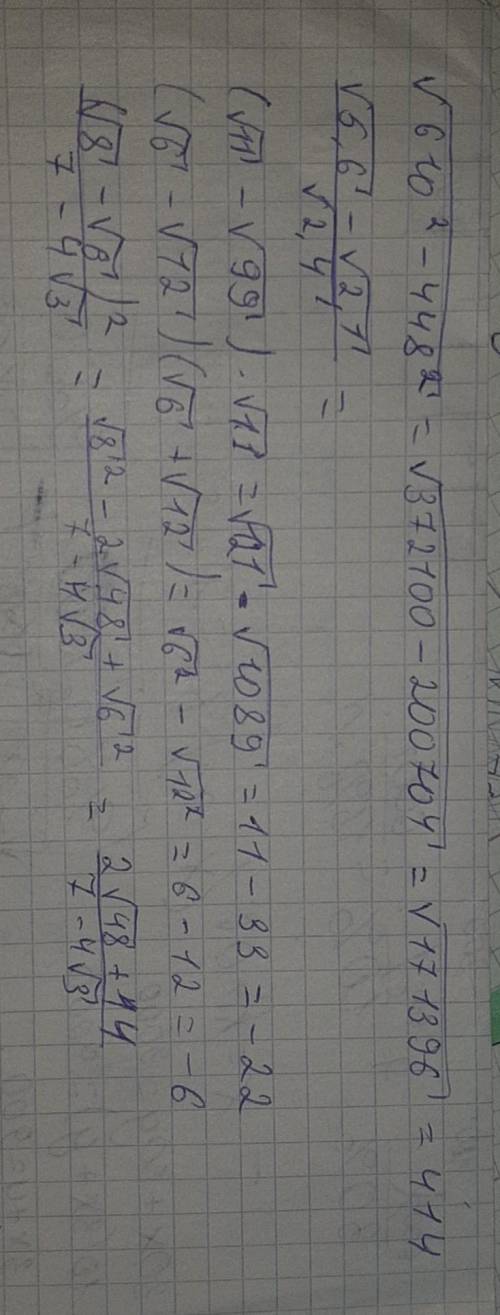 √610² - 448² = √372100 - 200704 = √171396 = 414
√6,6 - √2,7 / √2,4 =
(√11 - √99) · √11 = √121 - √1089 = 11 - 33 = -22
(√6 - √12)(√6 + √12) = √6² - √12² = 6 - 12 = -6
(√8 - √6)² / 7 - 4√3 = √8² - 2√48 + √6² / 7 - 4√3 = 2√48 + 14 / 7 - 4√3